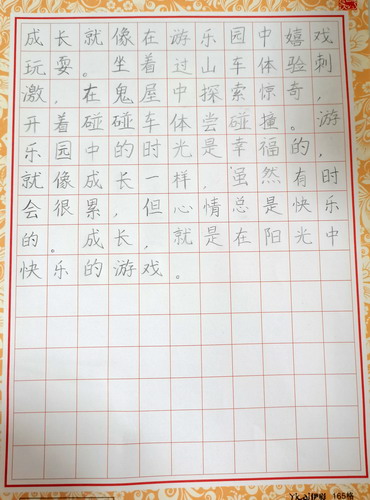 成长就像在游乐园中嬉戏
玩耍。坐着过山车体验刺
激，在鬼屋中探索惊奇，
开着碰碰车体尝碰撞。游
乐园中的时光是幸福的，
就像成长一样，虽然有时
会很累，但心情总是快乐
的。成长，就是在阳光中
快乐的游戏。
Yicai伊彩 165格